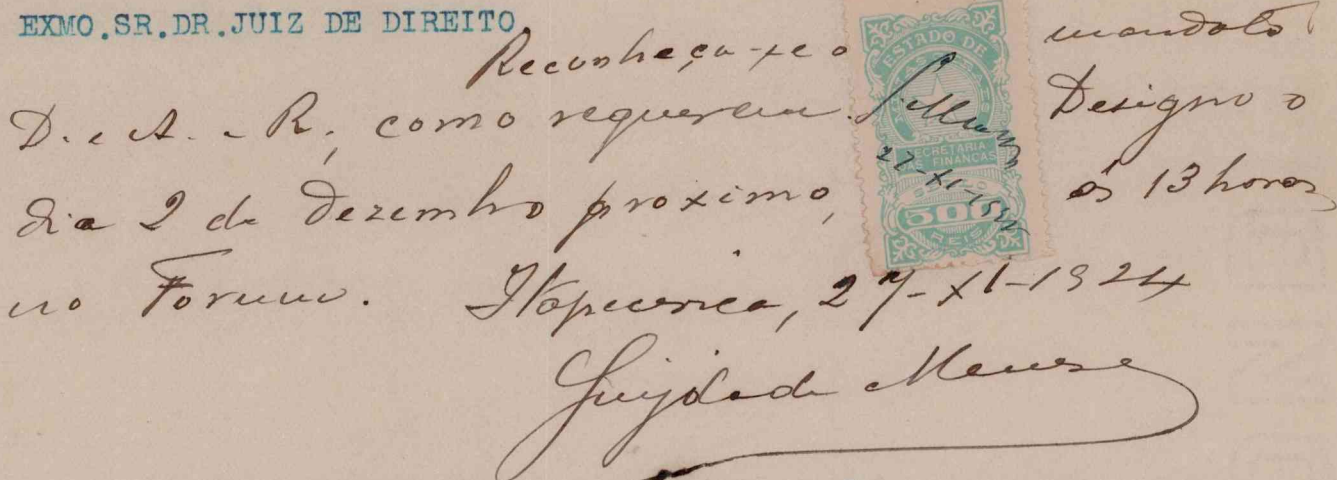 EXMO.SR.DR.JUIZ DE DIREITO
Reconheça-se o mandato
D. e A. e R., como requerem. Designo o
dia 2 de Dezembro proximo, ás 13 horas
no Forum. Itapecerica, 27-XI-1924
de Menezes
ESTADO DE
SECRETARIA
DAS FINANÇAS
500
REIS
27-XI-1924